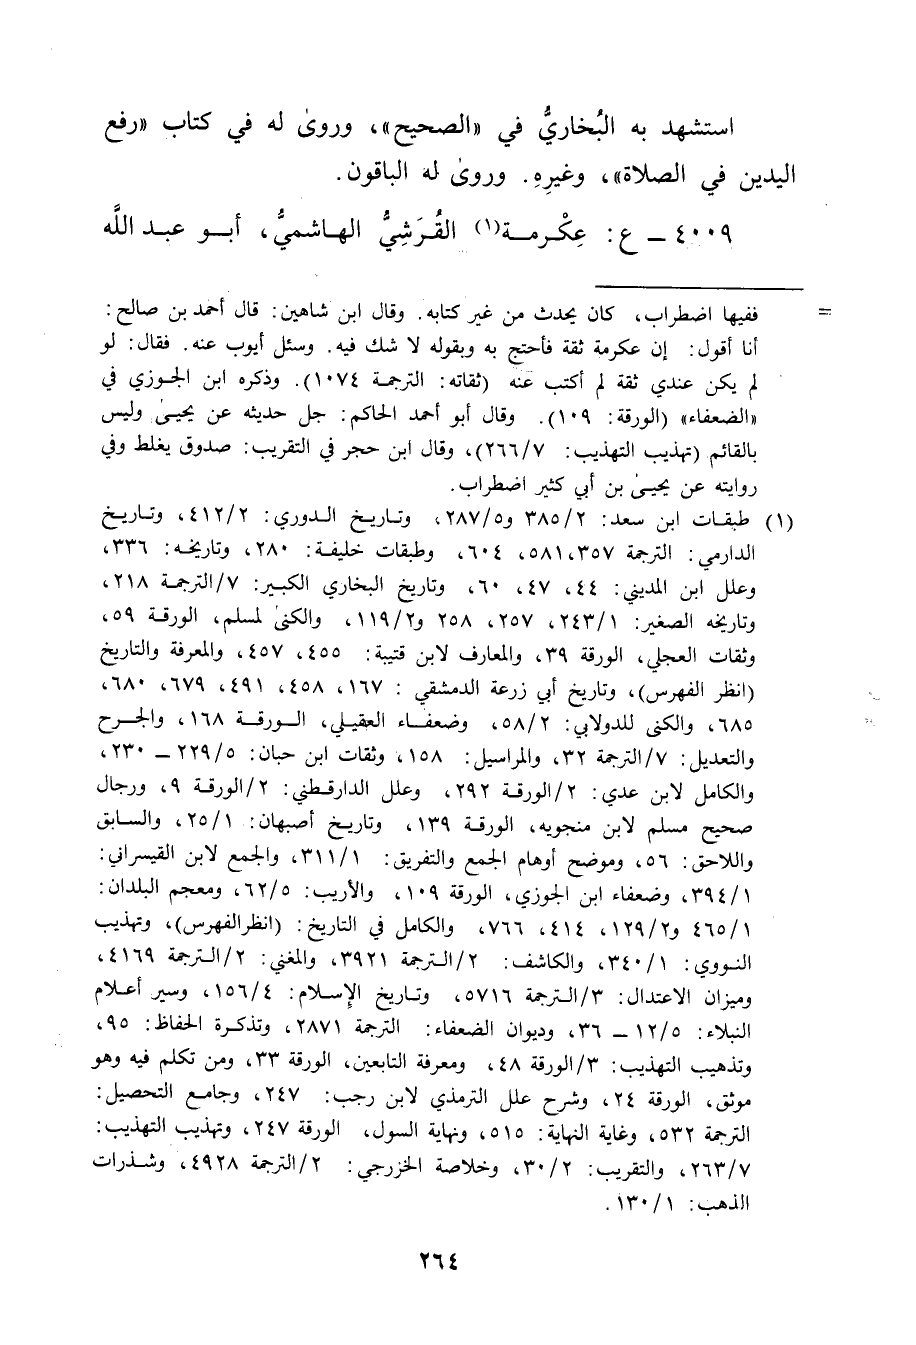 استشهد به البُخاريُّ في «الصحيح»، وروىٰ له في كتاب «رفع
اليدين في الصلاة»، وغيرِهِ. وروىٰ له الباقون.
٤٠٠٩ ـ ع: عِكْرمة(١) القُرَشِيُّ الهاشميُّ، أبو عبد اللَّه
= ففيها اضطراب، كان يحدث من غير كتابه. وقال ابن شاهين: قال أحمد بن صالح:
أنا أقول: إن عكرمة ثقة فأحتج به وبقوله لا شك فيه. وسئل أيوب عنه. فقال: لو
لم يكن عندي ثقة لم أكتب عنه (ثقاته: الترجمة ١٠٧٤). وذكره ابن الجوزي في
«الضعفاء» (الورقة: ١٠٩). وقال أبو أحمد الحاكم: جل حديثه عن يحيىٰ وليس
بالقائم (تهذيب التهذيب: ٢٦٦/٧)، وقال ابن حجر في التقريب: صدوق يغلط وفي
روايته عن يحيىٰ بن أبي كثير اضطراب.
(١) طبقات ابن سعد: ٣٨٥/٢ و٢٨٧/٥، وتاريخ الدوري: ٤١٢/٢، وتاريخ
الدارمي: الترجمة ٣٥٧، ٥٨١، ٦٠٤، وطبقات خليفة: ٢٨٠، وتاريخه: ٣٣٦،
وعلل ابن المديني: ٤٤، ٤٧، ٦٠، وتاريخ البخاري الكبير: ٧/الترجمة ٢١٨،
وتاريخه الصغير: ٢٤٣/١، ٢٥٧، ٢٥٨ و١١٩/٢، والكنىٰ لمسلم، الورقة ٥٩،
وثقات العجلي، الورقة ٣٩، والمعارف لابن قتيبة: ٤٥٥، ٤٥٧، والمعرفة والتاريخ
(انظر الفهرس)، وتاريخ أبي زرعة الدمشقي : ١٦٧، ٤٥٨، ٤٩١، ٦٧٩، ٦٨٠،
٦٨٥، والكنى للدولابي: ٥٨/٢، وضعفاء العقيلي، الورقة ١٦٨، والجرح
والتعديل: ٧/الترجمة ٣٢، والمراسيل: ١٥٨، وثقات ابن حبان: ٢٢٩/٥ ـ ٢٣٠،
والكامل لابن عدي: ٢/الورقة ٢٩٢، وعلل الدارقطني: ٢/الورقة ٩، ورجال
صحيح مسلم لابن منجويه، الورقة ١٣٩، وتاريخ أصبهان: ٢٥/١، والسابق
واللاحق: ٥٦، وموضح أوهام الجمع والتفريق: ٣١١/١، والجمع لابن القيسراني:
٣٩٤/١، وضعفاء ابن الجوزي، الورقة ١٠٩، والأريب: ٦٢/٥، ومعجم البلدان:
٤٦٥/١ و١٢٩/٢، ٤١٤، ٧٦٦، والكامل في التاريخ: (انظرالفهرس)، وتهذيب
النووي: ٣٤٠/١، والكاشف: ٢/الترجمة ٣٩٢١، والمغني: ٢/الترجمة ٤١٦٩،
وميزان الاعتدال: ٣/الترجمة ٥٧١٦، وتاريخ الإسلام: ١٥٦/٤، وسير أعلام
النبلاء: ١٢/٥ ـ ٣٦، وديوان الضعفاء: الترجمة ٢٨٧١، وتذكرة الحفاظ: ٩٥،
وتذهيب التهذيب: ٣/الورقة ٤٨، ومعرفة التابعين، الورقة ٣٣، ومن تكلم فيه وهو
موثق، الورقة ٢٤، وشرح علل الترمذي لابن رجب: ٢٤٧، وجامع التحصيل:
الترجمة ٥٣٢، وغاية النهاية: ٥١٥، ونهاية السول، الورقة ٢٤٧، وتهذيب التهذيب:
٢٦٣/٧، والتقريب: ٣٠/٢، وخلاصة الخزرجي: ٢/الترجمة ٤٩٢٨، وشذرات
الذهب: ١٣٠/١.
٢٦٤